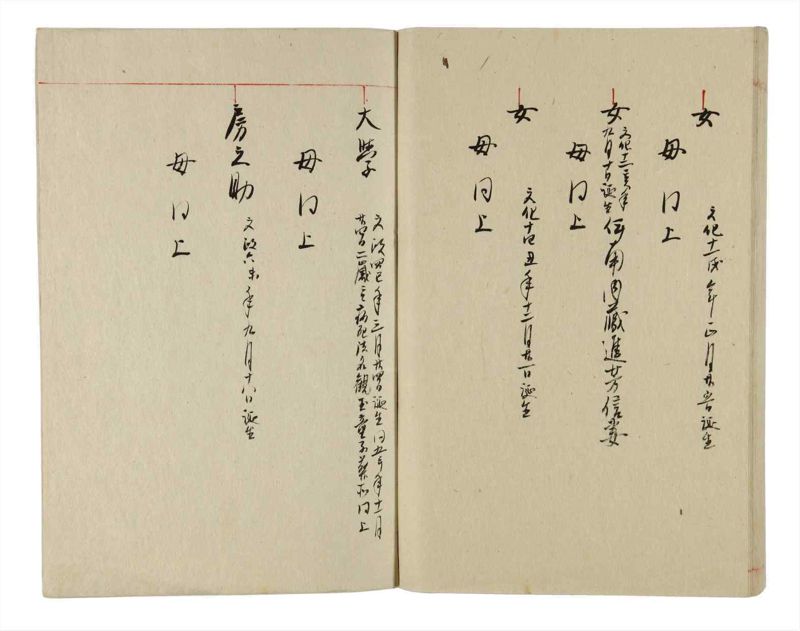 女
文化十一戌年正月廿五日誕生
母同上
女
文化十二亥年
九月十日誕生
内蔵進芳信妻
母同上
女
文化十四丑年十二月廿一日誕生
母同上
大学
文政四巳年三月廿四日誕生同五午年十一月
廿四日二歳ニ而病死法名観玉童子葬所同上
母同上
房之助
文政六未年九月十八日誕生
母同上